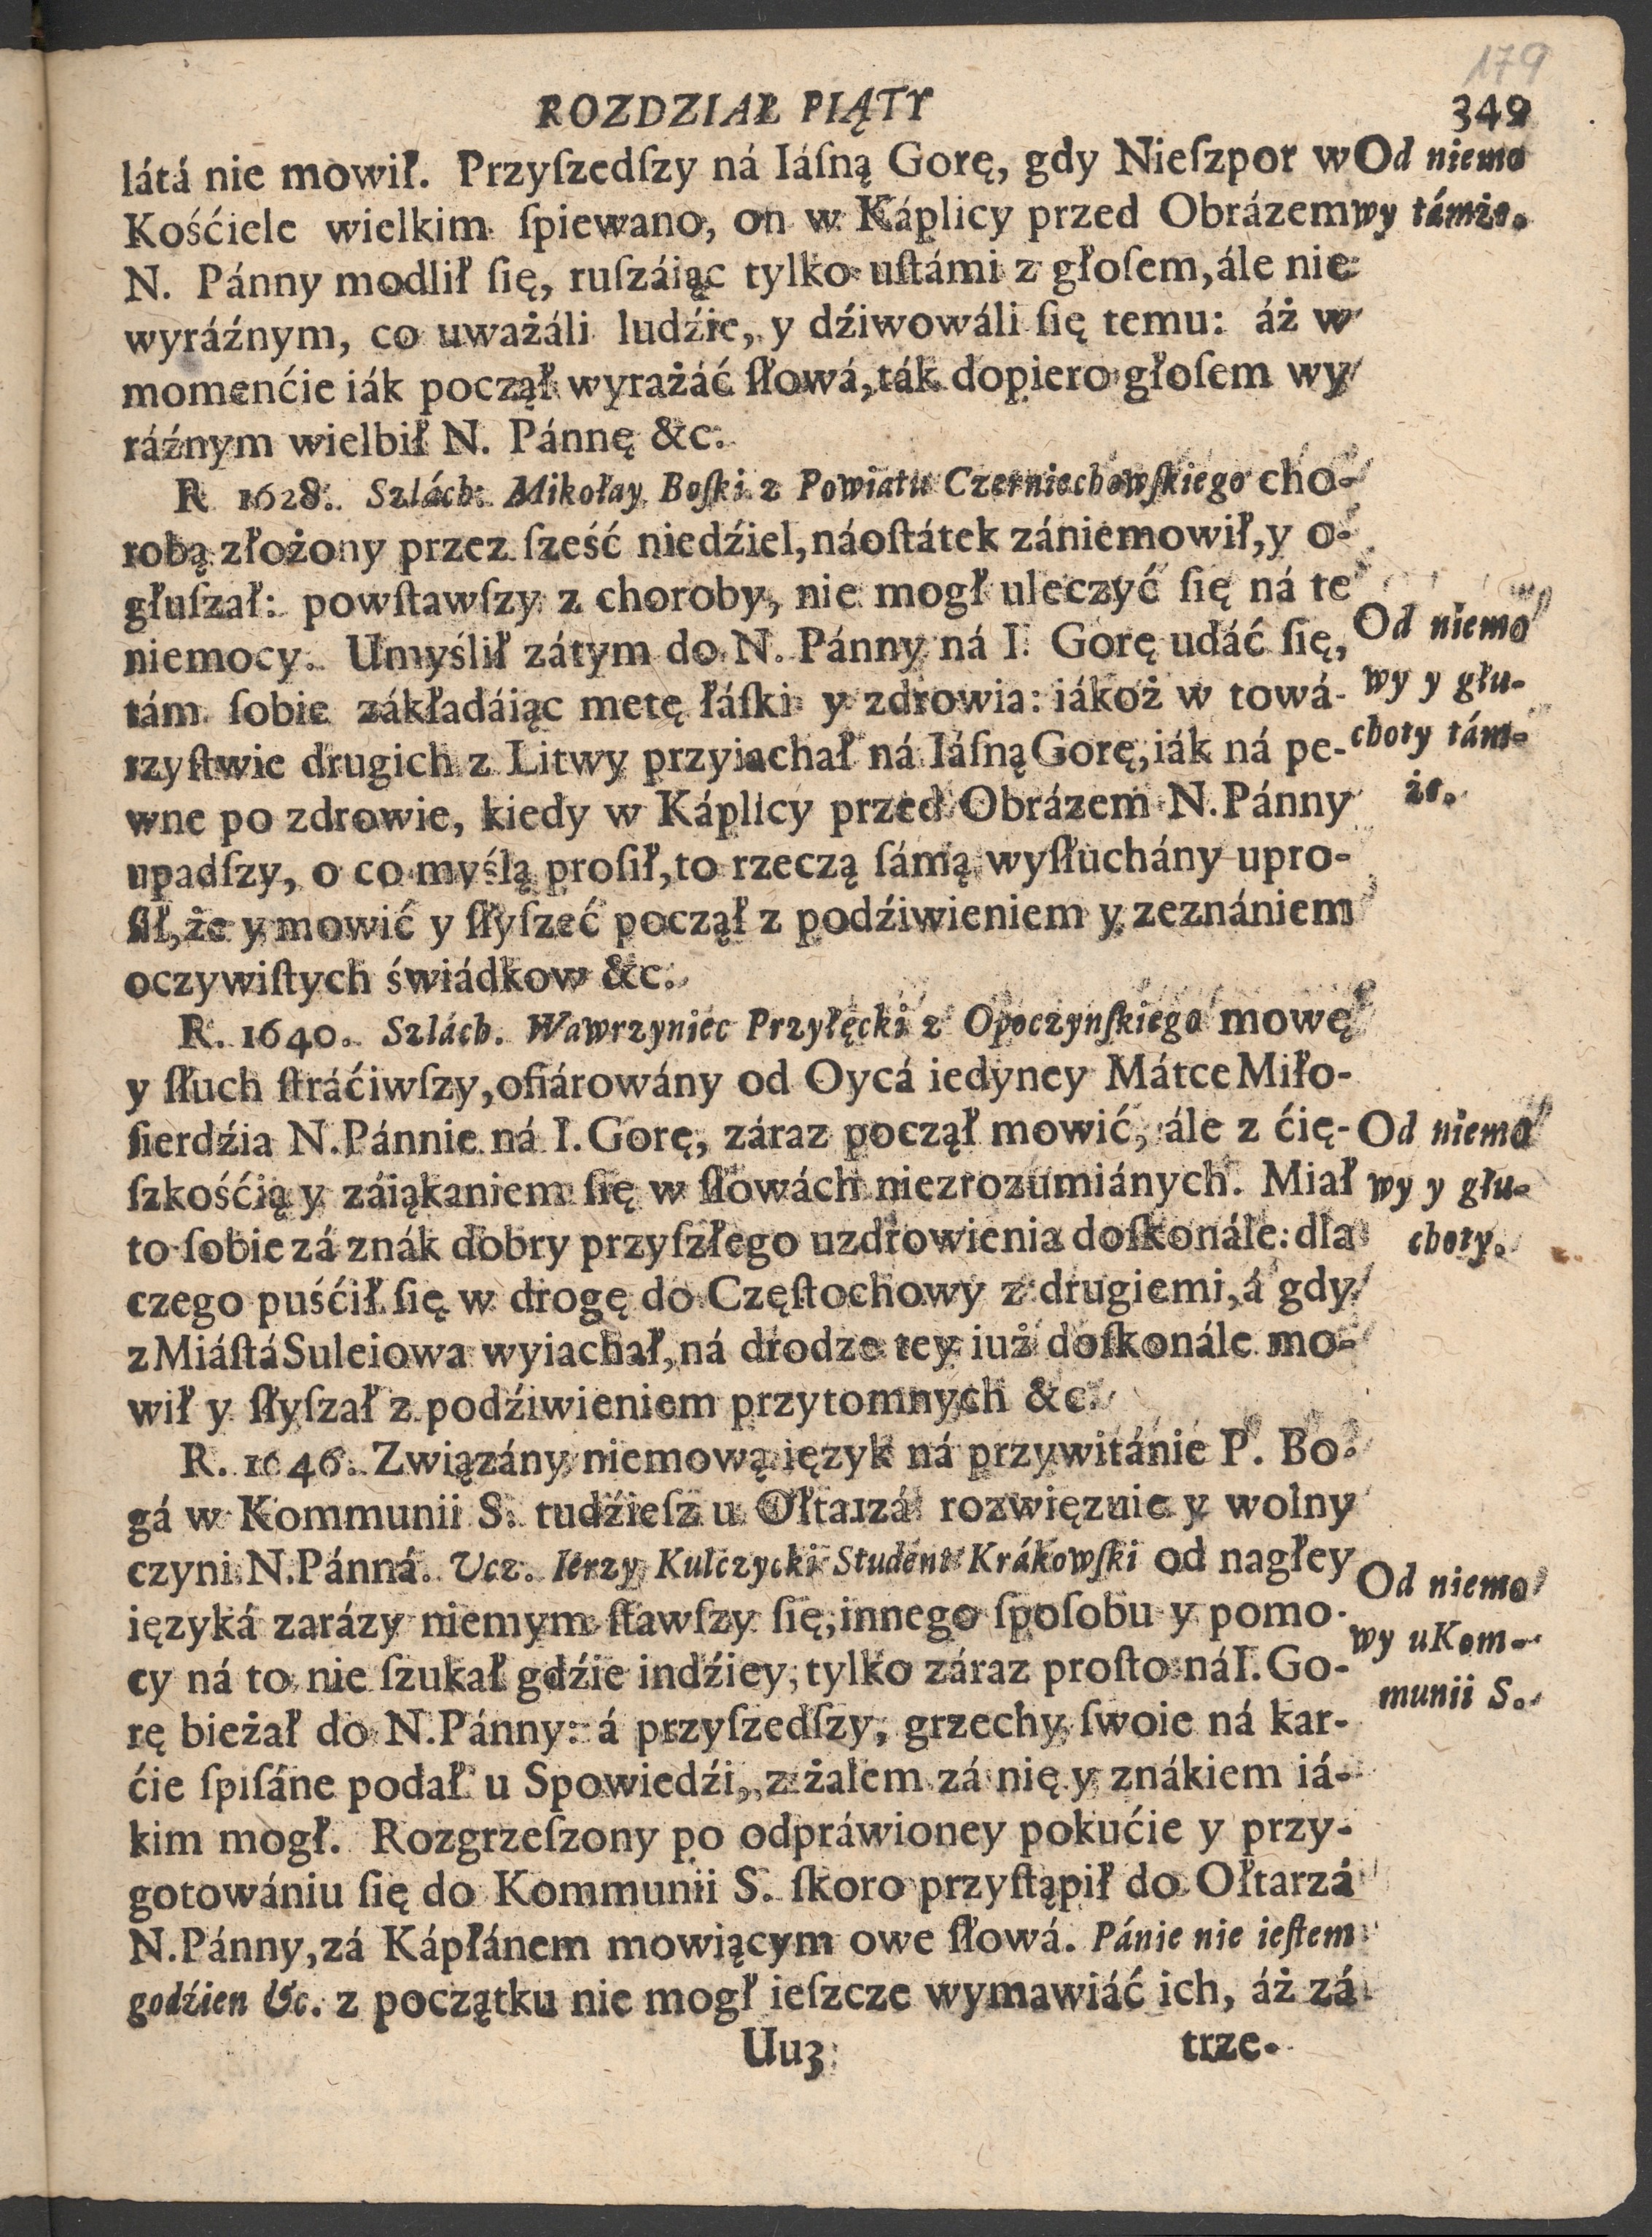 179
ROZDZIAŁ PIĄTY 349
látá nie mowił. Przyſzedſzy ná Iáſną Gorę, gdy Nieſzpor w
Od niemo
Kośćiele wielkim ſpiewano, on w Káplicy przed Obrázem
wy támże.
N. Pánny modlił ſię, ruſzáiąc tylko uſtámi z głoſem, ále nie
wyráźnym, co uważáli ludźie, y dźiwowáli ſię temu: áż w
momenćie iák począł wyrażáć ſłowá, ták dopiero głoſem wy
ráźnym wielbił N. Pánnę &c.
R 1628. Szlách: Mikołay Boſki z Powiatu Czerniechowſkiego cho-
robą złożony przez ſześć niedźiel, náoſtátek zániemowił, y o-
głuſzał: powſtawſzy z choroby, nie mogł uleczyć ſię ná te
niemocy. Umyślił zátym do N. Pánny ná I. Gorę udáć ſię,
Od niemo
tám ſobie zákładáiąc metę łáſki y zdrowia: iákoż w towá-
wy y głu-
rzyſtwie drugich z Litwy przyiachał ná Iáſną Gorę, iák ná pe-
choty tám-
wne po zdrowie, kiedy w Káplicy przed Obrázem N. Pánny
że.
upadſzy, o co myślą proſił, to rzeczą ſámą wyſłuchány upro-
ſił, że y mowić y ſłyſzeć począł z podźiwieniem y zeznániem
oczywiſtych świádkow &c.
R. 1640. Szlách. Wawrzyniec Przyłęcki z Opoczynſkiego mowę
y ſłuch ſtráćiwſzy, ofiárowány od Oycá iedyney Mátce Miło-
ſierdźia N. Pánnie ná I. Gorę, záraz począł mowić, ále z ćię-
Od niemo
ſzkośćią y záiąkaniem ſię w ſłowách niezrozumiánych. Miał
wy y głu-
to ſobie zá znák dobry przyſzłego uzdrowienia doſkonále: dla
choty.
czego puśćił ſię w drogę do Częſtochowy z drugiemi, á gdy
z Miáſtá Suleiowa wyiachał, ná drodze tey iuż doſkonále mo-
wił y ſłyſzał z podźiwieniem przytomnych &c.
R. 1646. Związány niemową ięzyk ná przywitánie P. Bo-
gá w Kommunii S. tudźieſz u Ołtarzá rozwięzuie y wolny
czyni N. Pánná. Vcz. Ierzy Kulczycki Student Krákowſki od nagłey
Od niemo
ięzyká zarázy niemym ſtawſzy ſię, innego ſpoſobu y pomo-
wy u Kom-
cy ná to nie ſzukał gdźie indźiey, tylko záraz proſto ná I. Go-
munii S.
rę bieżał do N. Pánny: á przyſzedſzy, grzechy ſwoie ná kar-
ćie ſpiſáne podał u Spowiedźi, z żalem zá nię y znákiem iá-
kim mogł. Rozgrzeſzony po odpráwioney pokućie y przy-
gotowániu ſię do Kommunii S. ſkoro przyſtąpił do Ołtarzá
N. Pánny, zá Kápłánem mowiącym owe ſłowá. Pánie nie ieſtem
godźien &c. z początku nie mogł ieſzcze wymawiáć ich, áż zá
Uu3
trze-